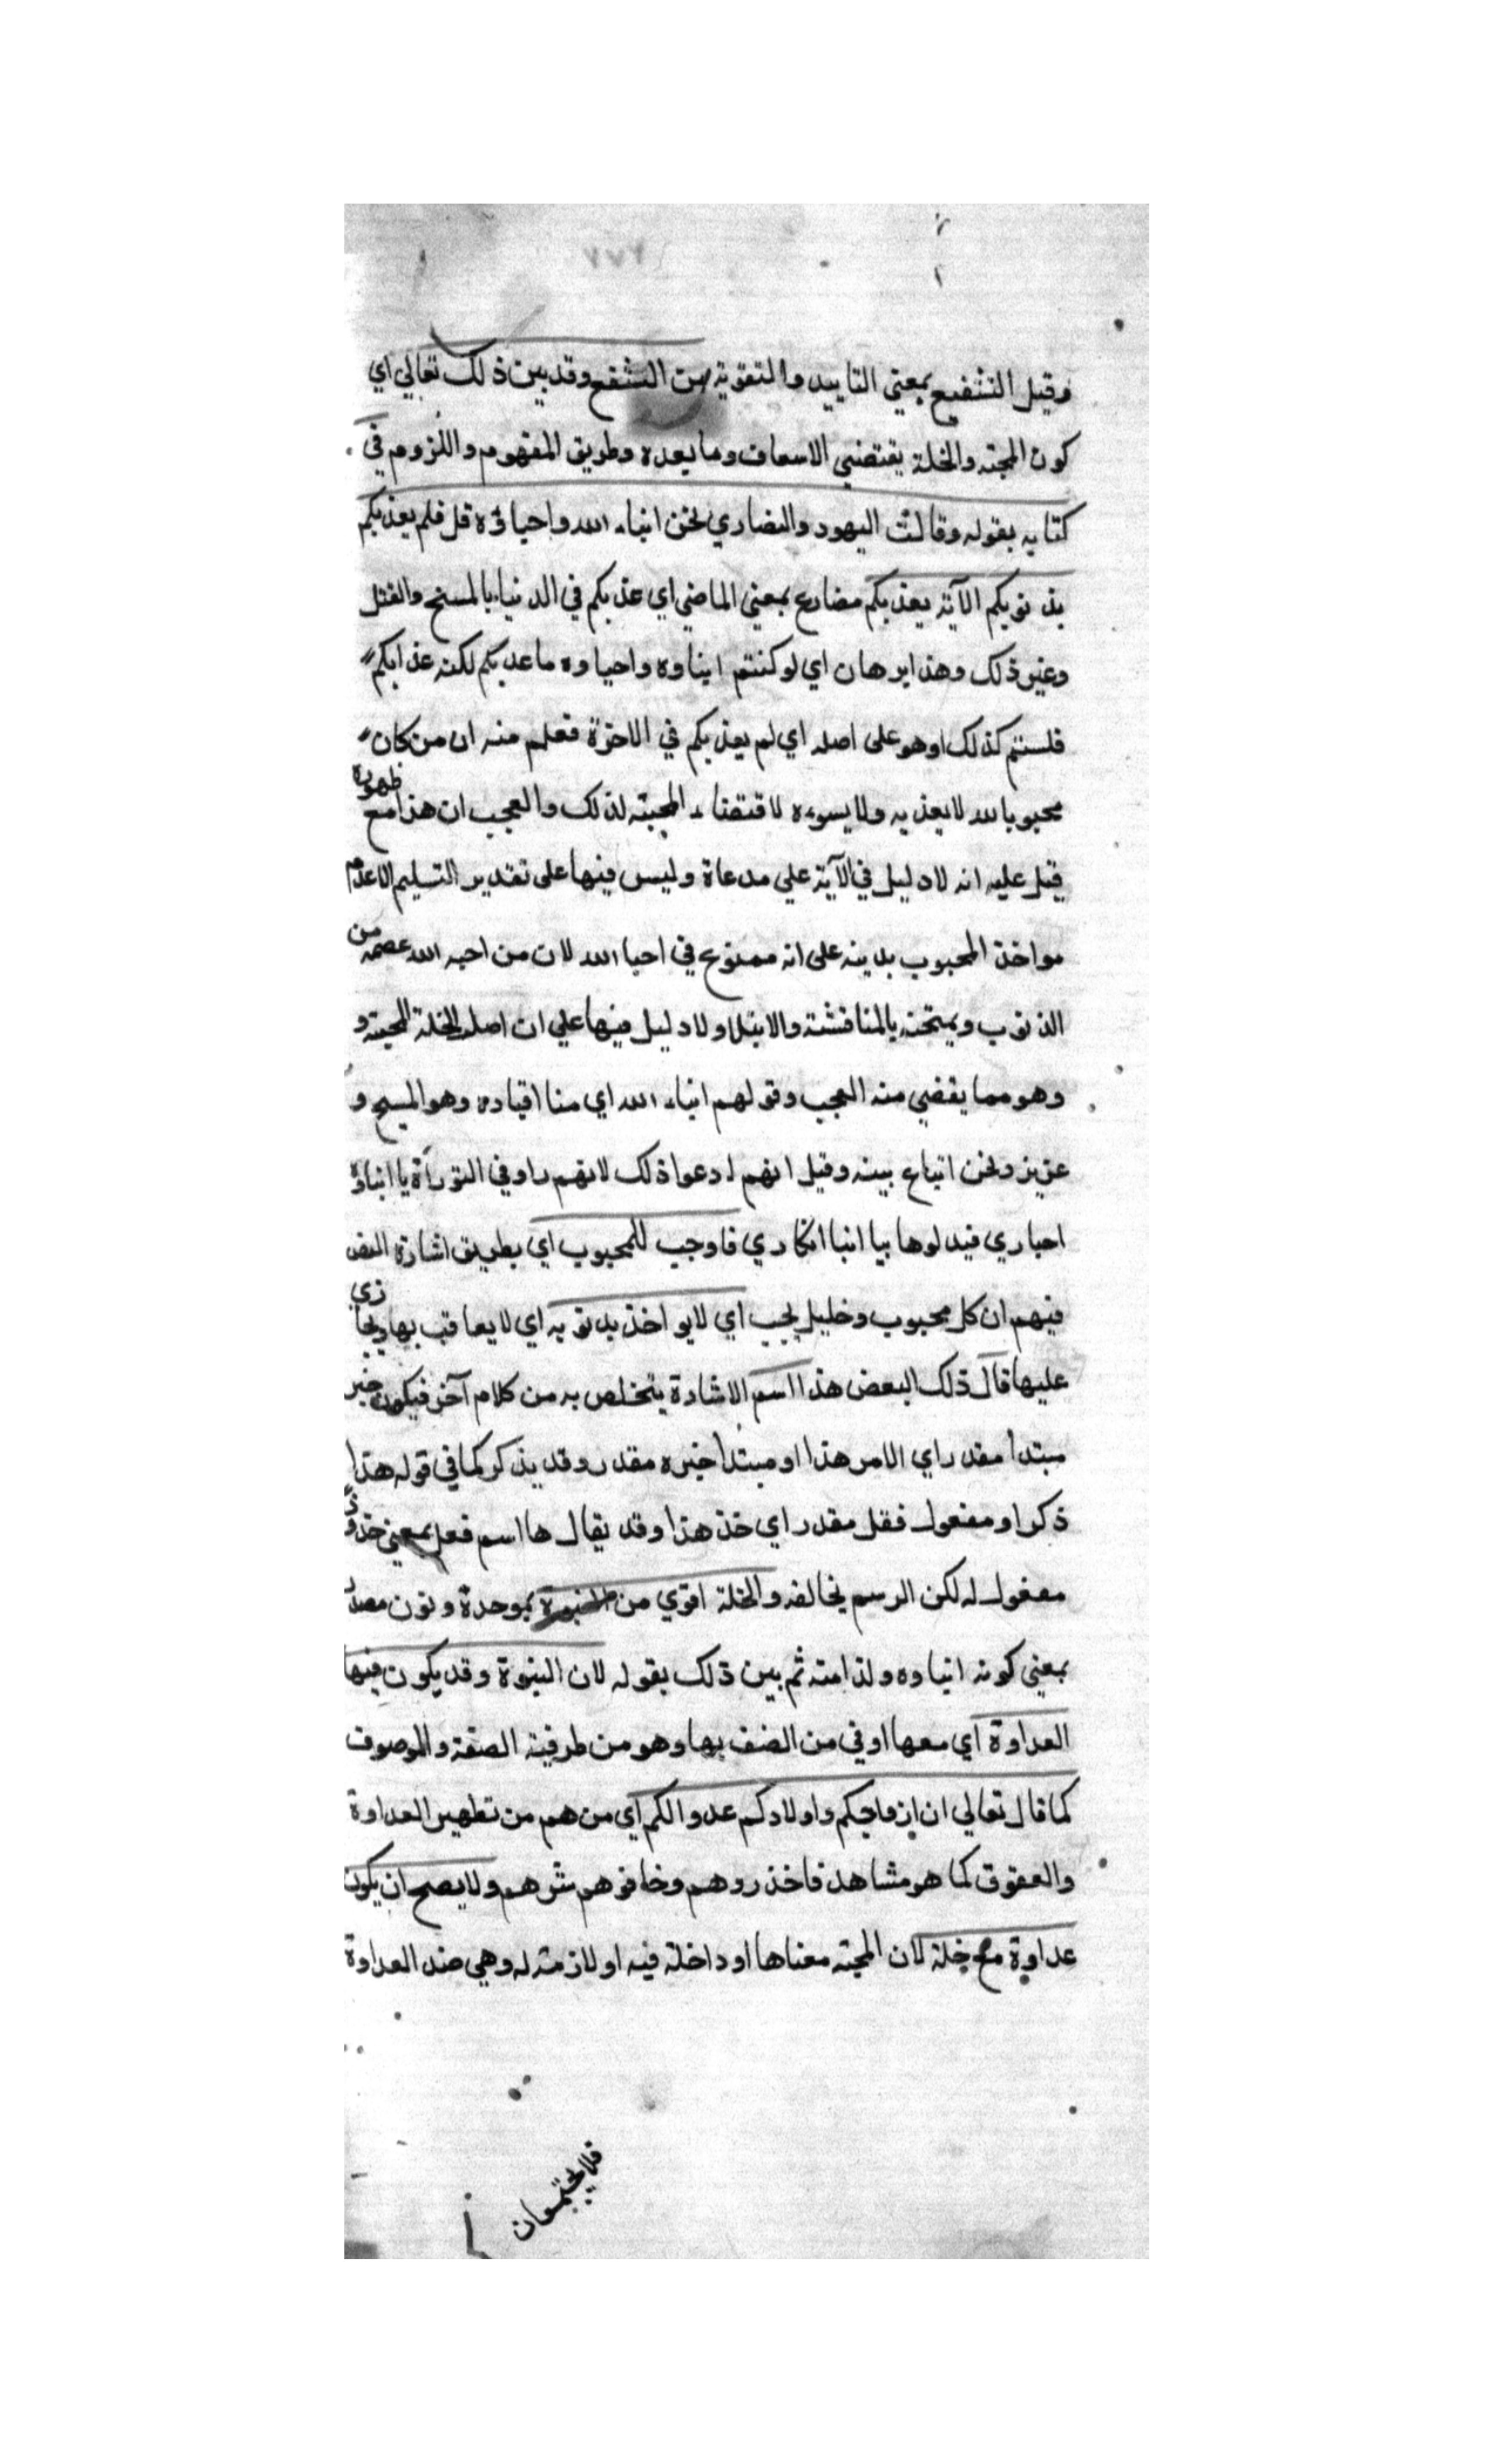 وقيل التشفيع بمعني التاييد والتقوية من الشفع وقد بين ذلك تعالي اي
كون المحبته والخلة يقتضي الاسعاف وما بعده وطريق المفهوم واللزوم في
كتابه بقوله وقالت اليهود والنصاري نحن ابناء الله واحباؤه قل فلم يعذبكم
بذنوبكم الآية يعذبكم مضارع بمعني الماضي اي عذبكم في الدنيا بالمسخ والقتل
وغير ذلك وهذا برهان اي لو كنتم ابناوه واحباوه ما عذبكم لكنه عذابكم
فلستم كذلك او هو على اصله اي لم يعذبكم في الاخرة فعلم منه ان من كان
محبوبا لله لا يعذبه ولا يسوءه لاقتضاء المحبته لذلك والعجب ان هذا مع ظهوره
قيل عليه انه لا دليل في الآية علي مدعاة وليس فيها على تقدير التسليم الا عدم
مواخذ المحبوب بدينه على انه ممنوع في احبا الله لان من احبه الله عصمه من
الذنوب ويمتحنه بالمناقشته والابتلا ولا دليل فيها علي ان اصله الخلة المحبته و
وهو مما يقضي منه العجب وقولهم ابناء الله اي منا اقياده وهو المسيح و
عزيز ونحن اتباع بينه وقيل انهم ادعوا ذلك لانهم راو في التورآة يا ابناؤ
احباري فبدلوها بيا ابنا ابكاري فاوجب للمحبوب اي بطريق اشارة النص
فيهم ان كل محبوب وخليل يجب اي لا يواخذ بذنوبه اي لا يعاقب بها ويجازي
عليها قال ذلك البعض هذا اسم الاشارة يتخلص به من كلام آخر فيكون خبر
مبتدأ مقدر اي الامر هذا او مبتدأ خبره مقدر وقد يذكر كما في قوله هذا
ذكر او مفعول فقل مقدر اي خذ هذا وقد يقال ها اسم فعل بمعني خذ وذا
مفعول له لكن الرسم يخالفه والخلة اقوي من البنوة بموحدة ونون مصدر
بمعني كونه ابناوه ولذا منه ثم بين ذلك بقوله لان البنوة وقد يكون فيها
العداوة اي معها او في من الضف بها وهو من طرفية الصفة والموصوف
كما قال تعالي ان ازواجكم واولادكم عدوا لكم اي من هم من تظهير العداوة
والعقوق كما هو مشاهد فاخذروهم وخافوهم شرهم ولا يصح ان يكون
عداوة مع خلة لان المحبته معناها او داخلة فيه او لازمته له وهي ضد العداوة
فلا يجتمعان